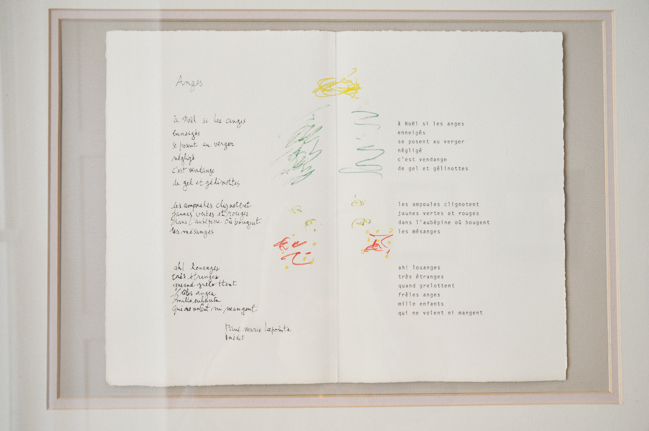 Anges
à Noël si les anges
enneigés
se posent au verger
négligé
c'est vendange
de gel et gélinottes
les ampoules clignotent
jaunes vertes et rouges
dans l'aubépine où bougent
les mésanges
ah! losanges
très étranges
quand grelottent
frêles anges
mille enfants
qui ne volent ni mangent
Paul-Marie Lapointe
inédit
à Noël si les anges
enneigés
se posent au verger
négligé
c'est vendange
de gel et gélinottes
les ampoules clignotent
jaunes vertes et rouges
dans l'aubépine où bougent
les mésanges
ah! losanges
très étranges
quand grelottent
frêles anges
mille enfants
qui ne volent ni mangent